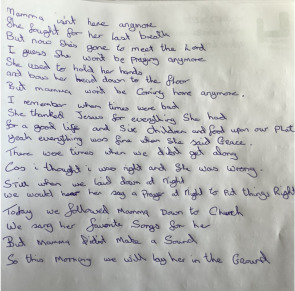 Mamma isn't here anymore
She fought for her last breath
But now she's gone to meet the Lord
I guess she wont be praying anymore
She used to hold her hands
and bow her head down to the floor
But mamma wont be Coming home anymore.
I remember when times were bad
She thanked Jesus for everything She had
for a good life and Six Children and food upon our Plat
Yeah everything was fine when She said Grace.
There were times when we didnt get along
Cos i thought i was right and She was wrong.
Still when we laid down at Night
we would hear her say a Prayer at Night to Put things Right
Today we followed Mamma Down to Church
We sang her favorite Songs for her
But Mamma Didnt Make a Sound
So this Morning we will lay her in the Ground